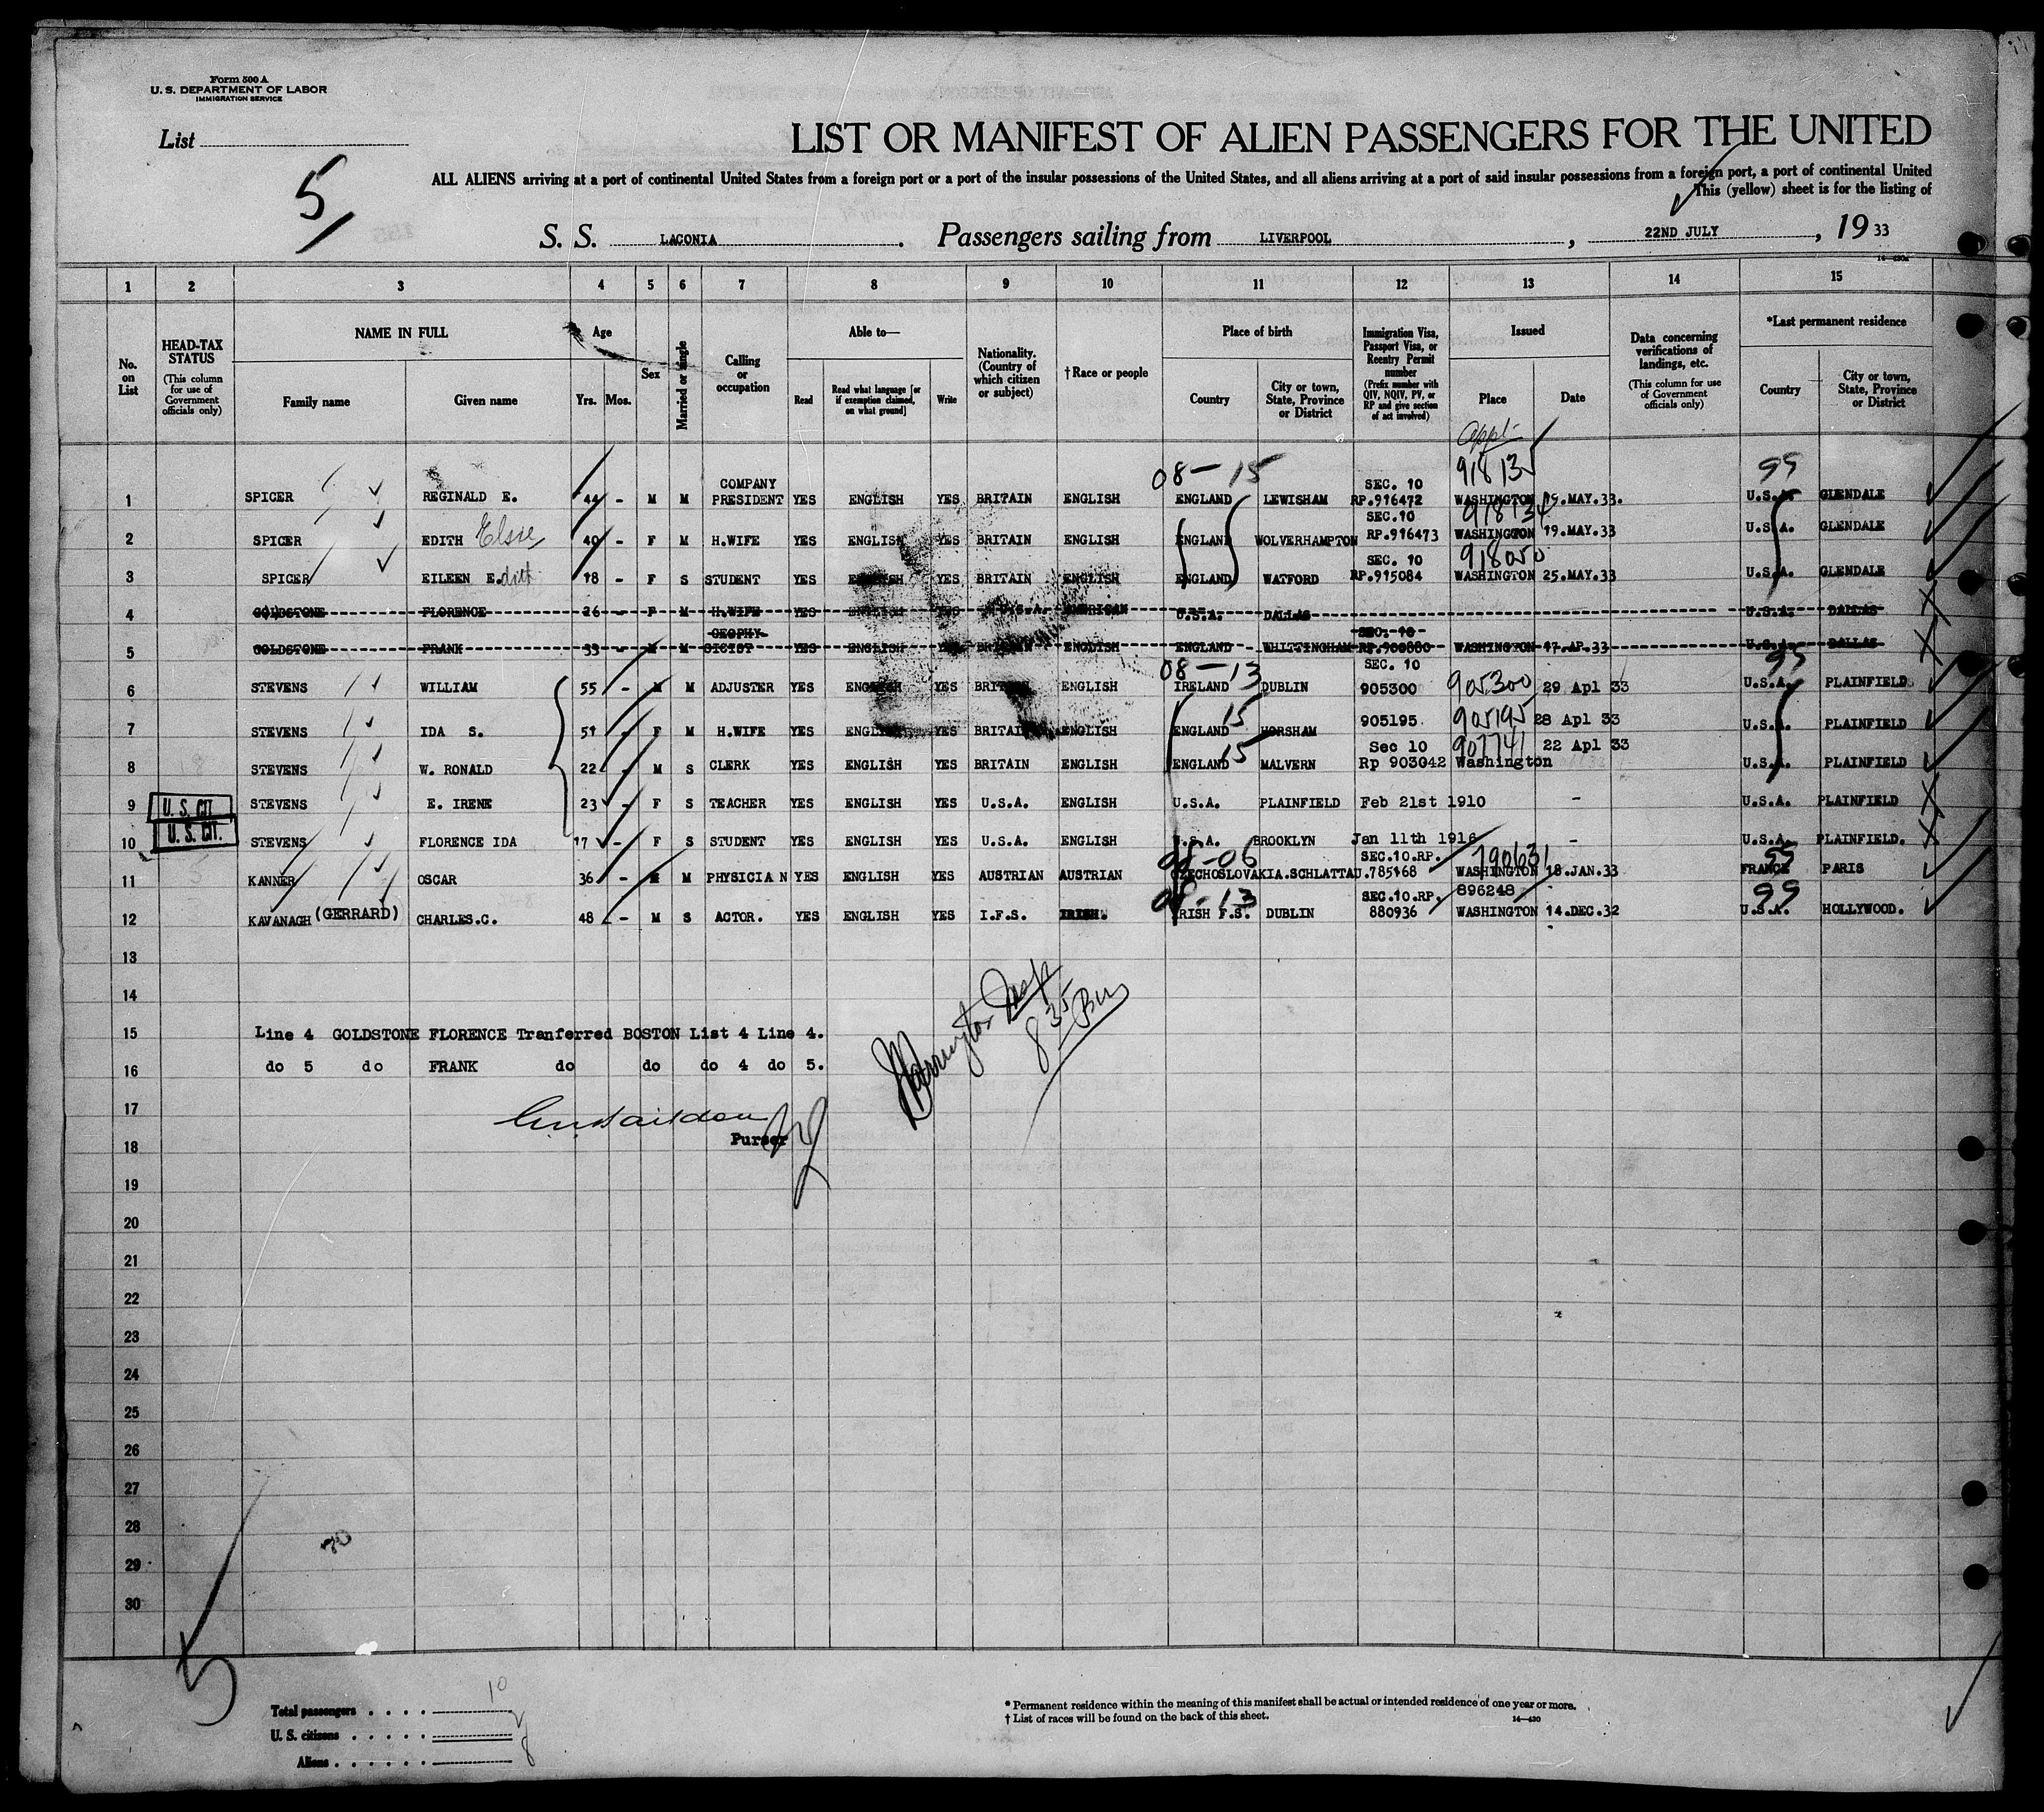 Form 500 A
U. S. DEPARTMENT OF LABOR
IMMIGRATION SERVICE
List
5
LIST OR MANIFEST OF ALIEN PASSENGERS FOR THE UNITED
ALL ALIENS arriving at a port of continental United States from a foreign port or a port of the insular possessions of the United States, and all aliens arriving at a port of said insular possessions from a foreign port, a port of continental United
This (yellow) sheet is for the listing of
S. S. LACONIA. Passengers sailing from LIVERPOOL, 22ND JULY, 19 33
1 2 3 4 5 6 7 8 9 10 11 12 13 14 15
No. on List
HEAD-TAX STATUS (This column for use of Government officials only)
NAME IN FULL Family name Given name
Age Yrs. Mos.
Sex
Married or single
Calling or occupation
Able to— Read Read what language [or if exemption claimed, on what ground] Write
Nationality. (Country of which citizen or subject)
†Race or people
Place of birth Country City or town, State, Province or District
Immigration Visa, Passport Visa, or Reentry Permit number (Prefix number with QIV, NQIV, PV, or RP and give section of act involved)
Issued Place Date
Data concerning verifications of landings, etc. (This column for use of Government officials only)
*Last permanent residence Country City or town, State, Province or District
Appl-
08-15 918135 99
COMPANY SEC. 10
1 SPICER REGINALD E. 44 - M M PRESIDENT YES ENGLISH YES BRITAIN ENGLISH ENGLAND LEWISHAM RP.916472 WASHINGTON 19.MAY.33. U.S.A. GLENDALE
SEC.10 918134
2 SPICER EDITH Elsie 40 - F M H.WIFE YES ENGLISH YES BRITAIN ENGLISH ENGLAND WOLVERHAMPTON RP.916473 WASHINGTON 19.MAY.33 U.S.A. GLENDALE
SEC. 10 918050
3 SPICER EILEEN E.dith 18 - F S STUDENT YES ENGLISH YES BRITAIN ENGLISH ENGLAND WATFORD RP.915084 WASHINGTON 25.MAY.33 U.S.A. GLENDALE
4 GOLDSTONE FLORENCE 26 - F M H.WIFE YES ENGLISH YES U.S.A. AMERICAN U.S.A. DALLAS U.S.A. DALLAS
GEOPHY- SEC. 10
5 GOLDSTONE FRANK 33 - M M SICIST YES ENGLISH YES BRITAIN ENGLISH ENGLAND WHITTINGHAM RP.900880 WASHINGTON 17.AP.33 U.S.A. DALLAS
08-13 SEC. 10 99
6 STEVENS WILLIAM 55 - M M ADJUSTER YES ENGLISH YES BRITAIN ENGLISH IRELAND DUBLIN 905300 905300 29 Apl 33 U.S.A. PLAINFIELD
15
7 STEVENS IDA S. 51 - F M H.WIFE YES ENGLISH YES BRITAIN ENGLISH ENGLAND HORSHAM 905195 905195 28 Apl 33 U.S.A. PLAINFIELD
15 Sec 10 907741 22 Apl 33
8 STEVENS W. RONALD 22 - M S CLERK YES ENGLISH YES BRITAIN ENGLISH ENGLAND MALVERN Rp 903042 Washington U.S.A. PLAINFIELD
9 U. S. CIT. STEVENS E. IRENE 23 - F S TEACHER YES ENGLISH YES U.S.A. ENGLISH U.S.A. PLAINFIELD Feb 21st 1910 - U.S.A. PLAINFIELD
10 U. S. CIT. STEVENS FLORENCE IDA 17 - F S STUDENT YES ENGLISH YES U.S.A. ENGLISH U.S.A. BROOKLYN Jan 11th 1916 - U.S.A. PLAINFIELD.
08-06 SEC.10.RP. 790631 99
11 KANNER OSCAR 36 - M M PHYSICIAN YES ENGLISH YES AUSTRIAN AUSTRIAN CZECHOSLOVAKIA.SCHLATTAU.785168 WASHINGTON 18.JAN.33 FRANCE PARIS
08-13 SEC.10.RP. 896248 99
12 KAVANAGH (GERRARD) CHARLES.C. 48 - M S ACTOR. YES ENGLISH YES I.F.S. IRISH. IRISH F.S. DUBLIN 880936 WASHINGTON 14.DEC.32 U.S.A. HOLLYWOOD.
13
14
15 Line 4 GOLDSTONE FLORENCE Tranferred BOSTON List 4 Line 4.
16 do 5 do FRANK do do do 4 do 5.
17
Purser
18
19
20
21
22
23
24
25
26
27
28
29
30
5
Total passengers 10
U. S. citizens 2
Aliens 8
* Permanent residence within the meaning of this manifest shall be actual or intended residence of one year or more.
† List of races will be found on the back of this sheet.
14—430